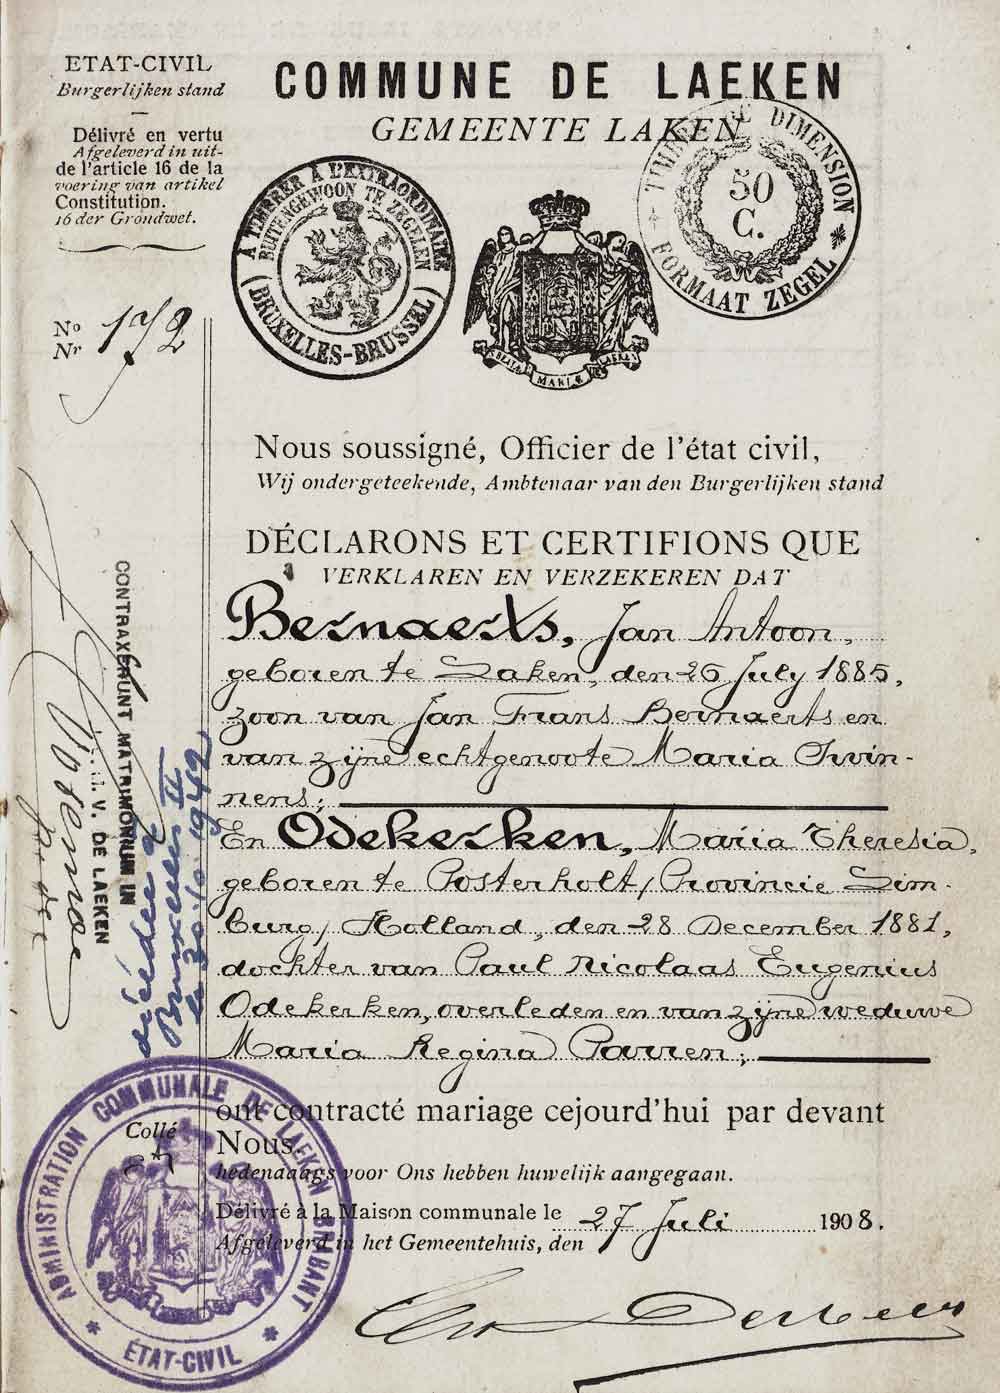 ETAT-CIVIL
Burgerlijken stand
Délivré en vertu
Afgeleverd in uit-
de l'article 16 de la
voering van artikel
Constitution.
16 der Grondwet.
COMMUNE DE LAEKEN
GEMEENTE LAKEN
A TIMBRER A L'EXTRAORDINAIRE
BUITENGEWOON TE ZEGELEN
(BRUXELLES-BRUSSEL)
BEATA MARIÆ LAEKA
TIMBRE DE DIMENSION
50
C.
FORMAAT ZEGEL
No
Nr 172
Nous soussigné, Officier de l'état civil,
Wij ondergeteekende, Ambtenaar van den Burgerlijken stand
DÉCLARONS ET CERTIFIONS QUE
VERKLAREN EN VERZEKEREN DAT
Bernaerts, Jan Antoon,
geboren te Laken, den 26 July 1885,
zoon van Jan Frans Bernaerts en
van zijne echtgenoote Maria Irvin-
nens;
En Odekerken, Maria Theresia,
geboren te Posterholt, Provincie Lim-
burg, Holland, den 28 December 1881,
dochter van Paul Nicolaas Eugenius
Odekerken, overleden en van zijne weduwe
Maria Regina Parren;
ont contracté mariage cejourd'hui par devant
Nous.
hedenaaags voor Ons hebben huwelijk aangegaan.
Délivré à la Maison communale le 27 Juli 1908.
Afgeleverd in het Gemeentehuis, den
CONTRAXERUNT MATRIMONIUM IN
V. DE LAEKEN
décédée à
Bruxelles II
le 30.10.1942
Collé
ADMINISTRATION COMMUNALE DE LAEKEN BRABANT
ÉTAT-CIVIL